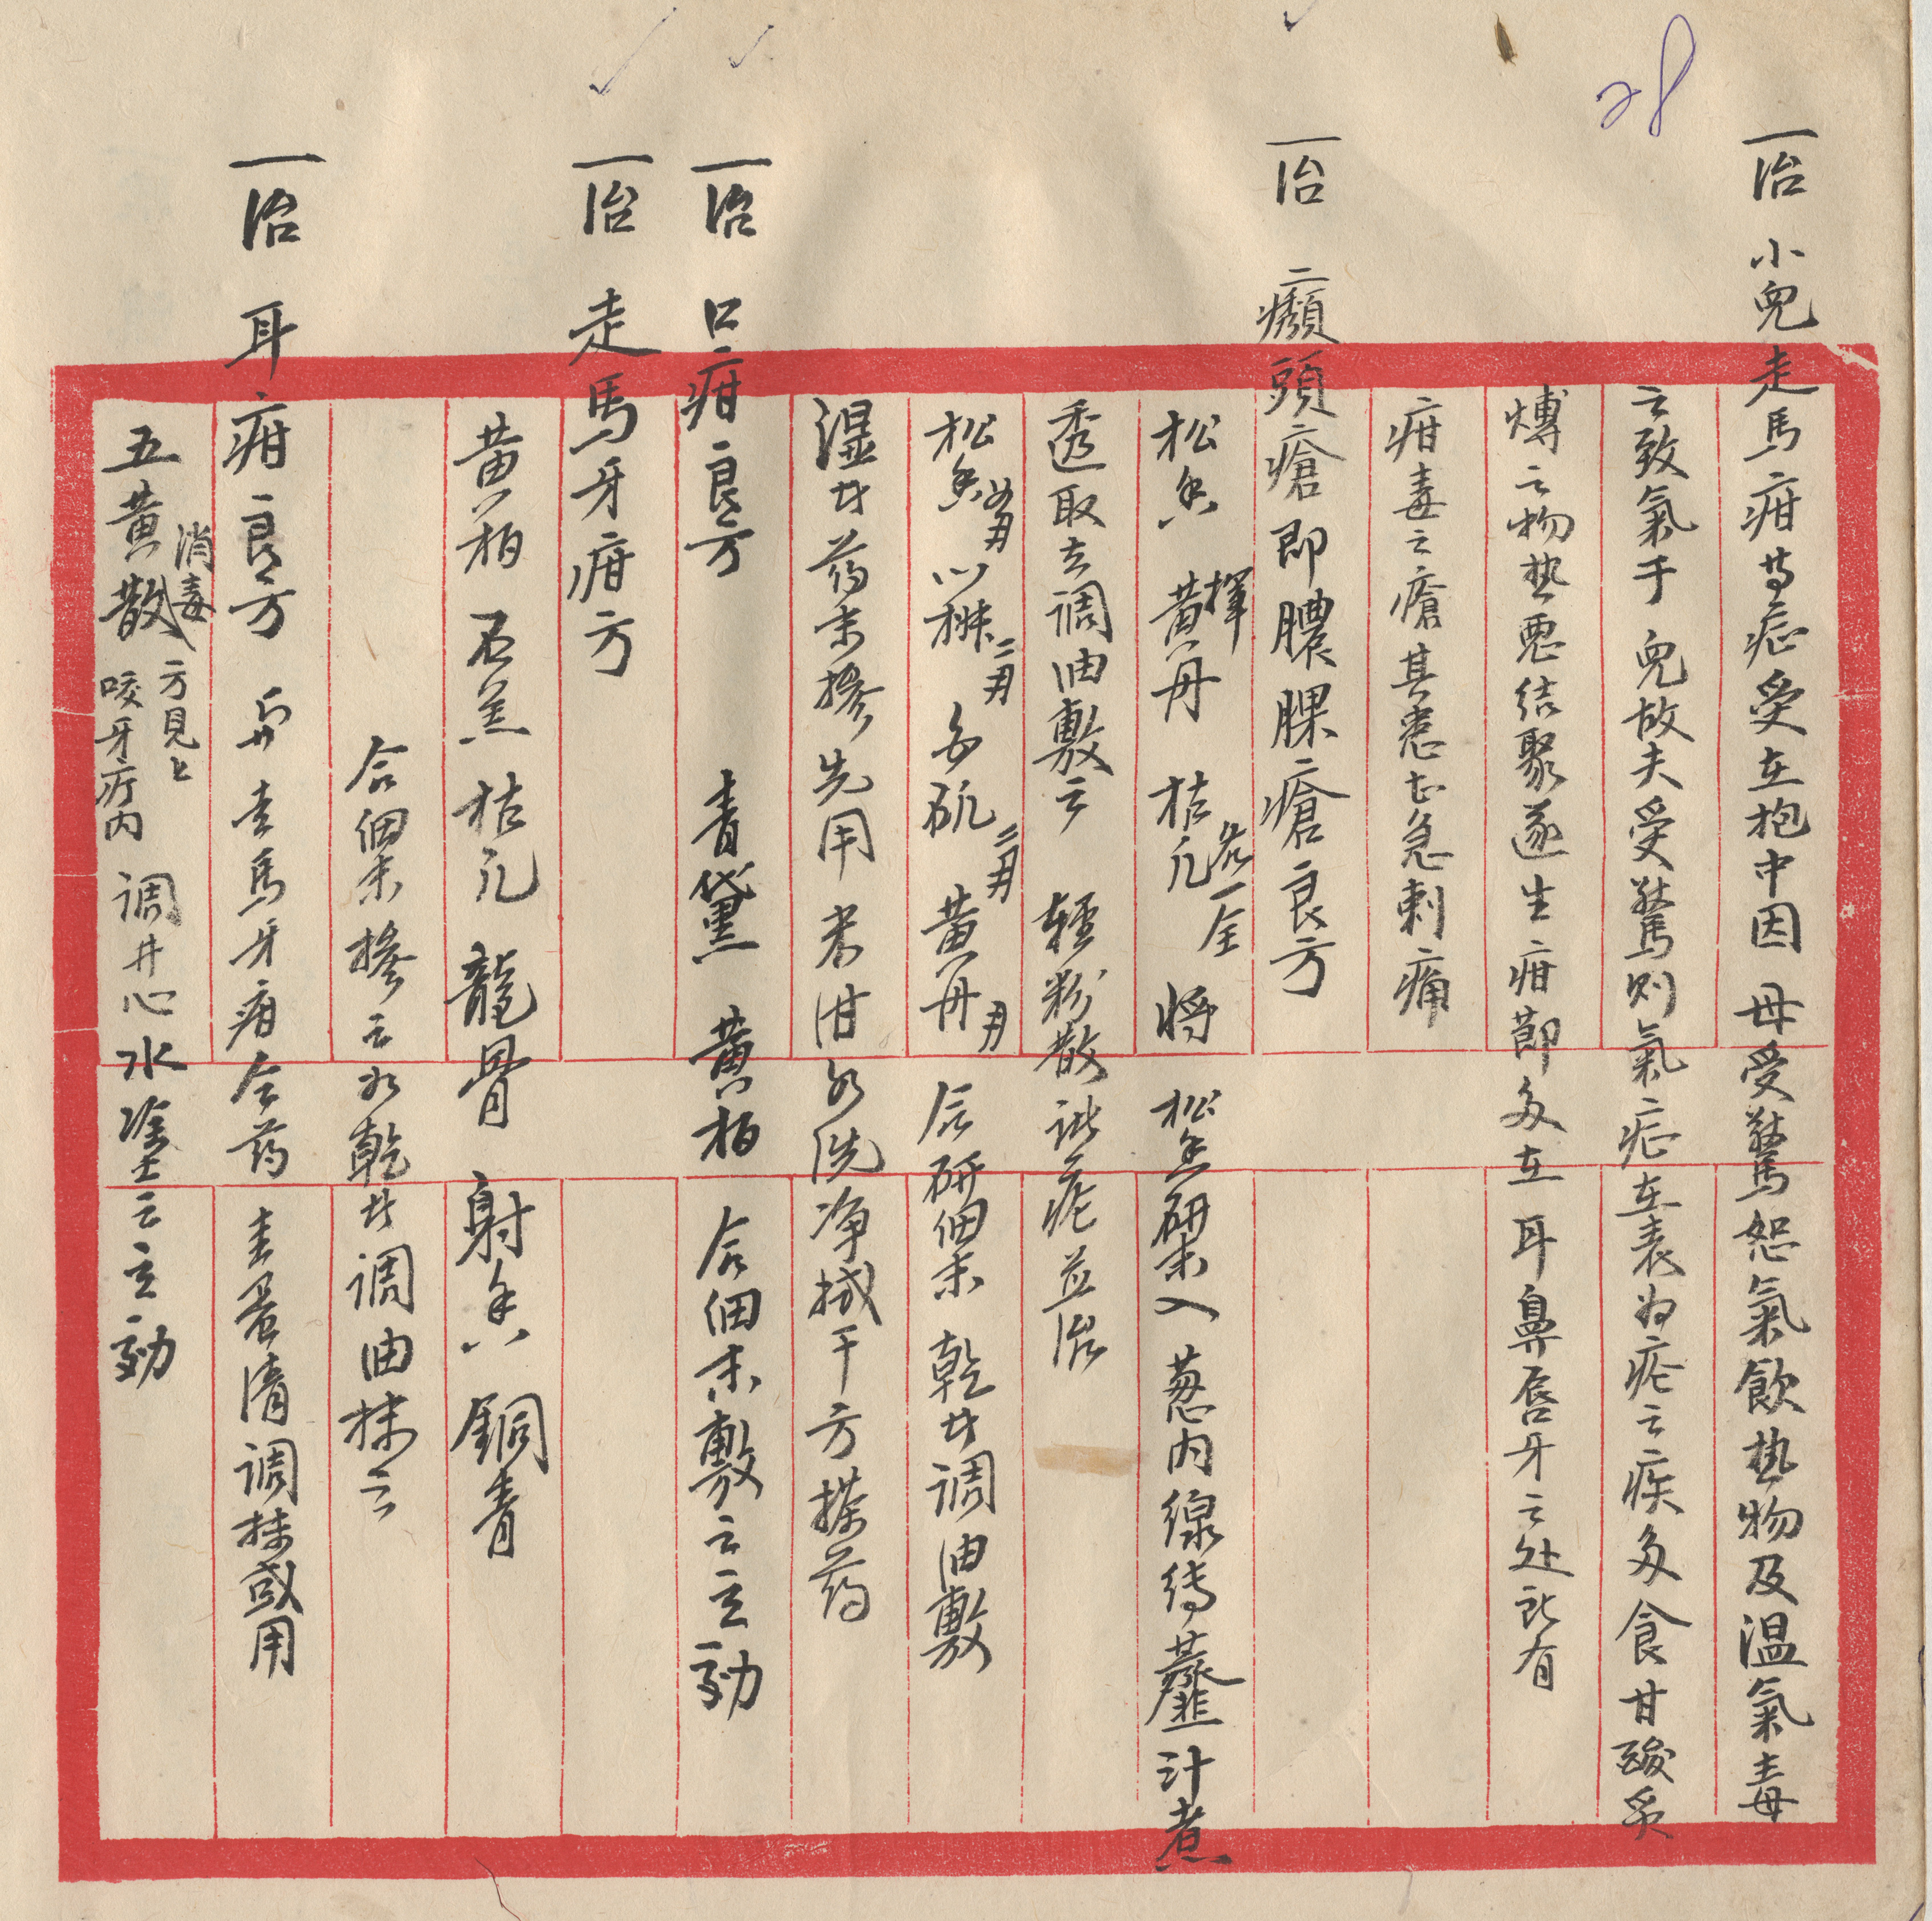 28
一治 小兒走馬疳其症受在抱中因 母受驚恕氣飲热物及温氣毒
之致氣于 兒故夫受驚则氣症在表为疮之疾多食甘酸炙
煿之物热悪结聚遂生疳節多在 耳鼻唇牙之处託有
疳毒之瘡其患甚急刺痛
一治 癩頭瘡即膿腂瘡良方
松香 黄丹揮 枯凡各一仝 將 松香研末入葱内線缚虀汁煮
透取去调油敷之 輕粉散 諸疮並治
松香 川椒二刃 白矾二刃 黄丹刃 合研细末 乾者调油敷
湿者药末摻先用米泔水洗净拭干方搽药
一治 口疳良方 青黛 黄柏 合细末敷之立効
一治 走馬牙疳方
黄柏 石羔 枯凡 龍骨 射香 銅青
合细末摻之如乾者调油抹之
一治 耳疳良方 与走馬牙疳仝药 圭蛋清调抹或用
五黄散 消毒 方見上 咬牙疳内 调井心水塗之立効